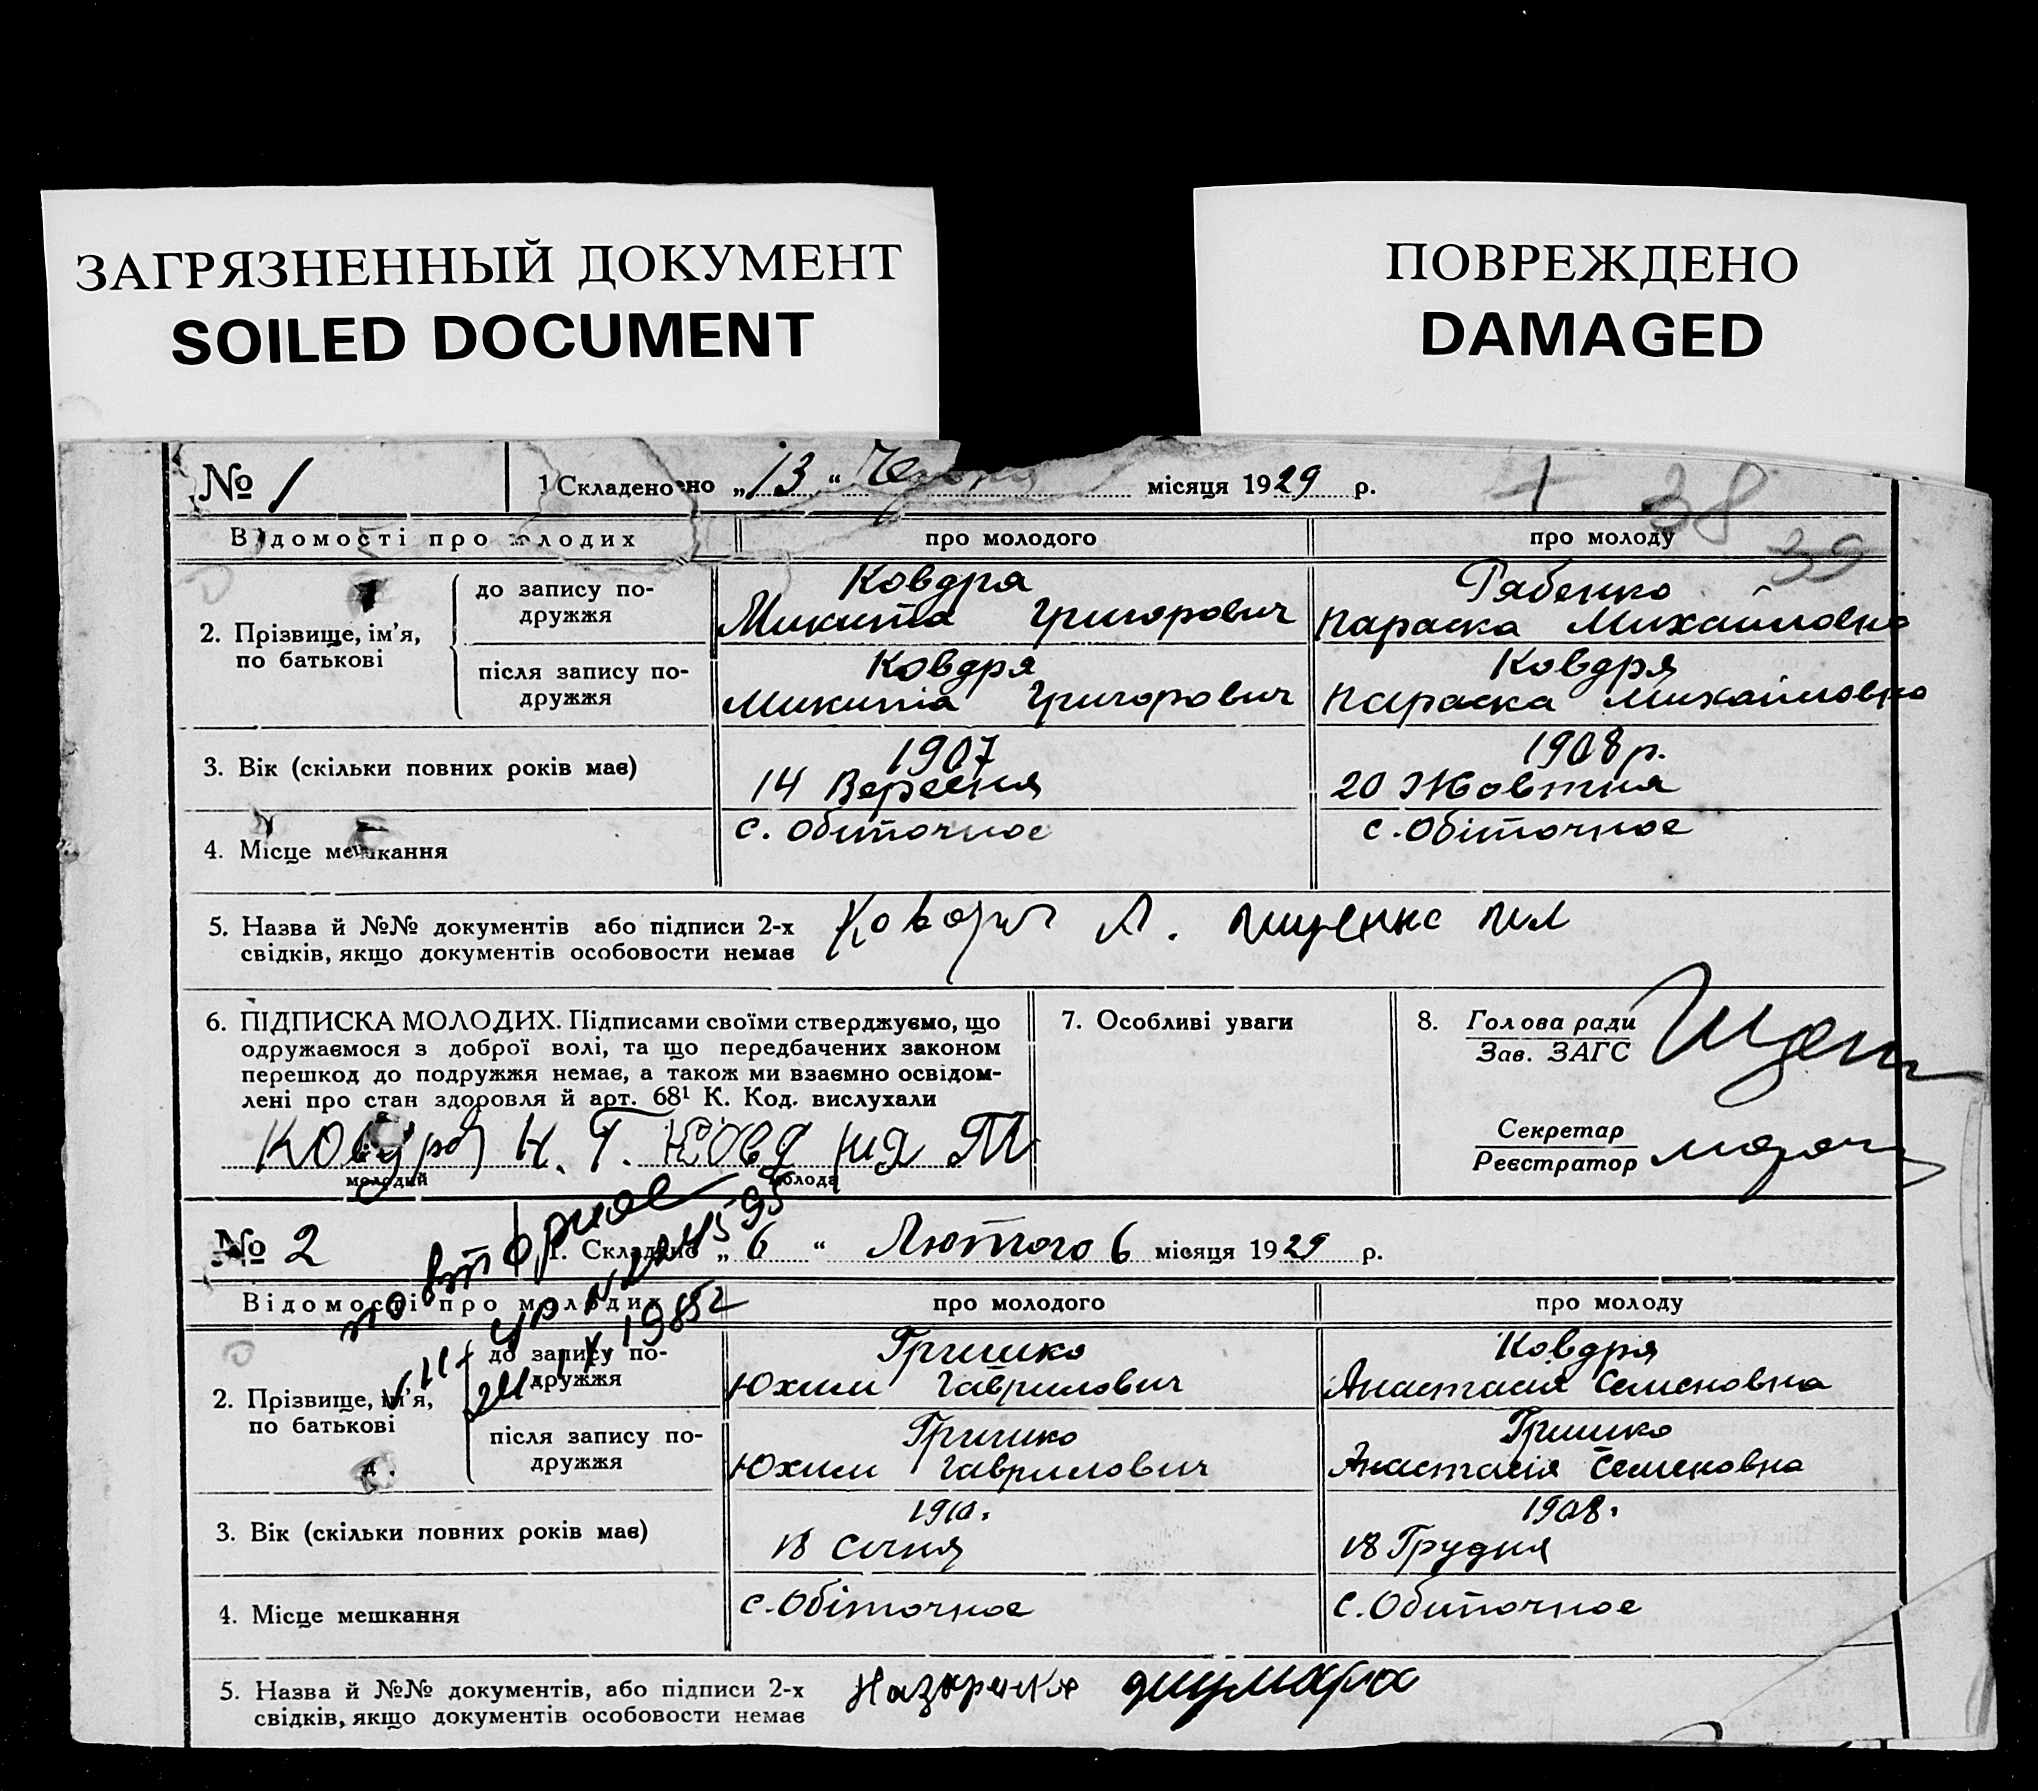 ЗАГРЯЗНЕННЫЙ ДОКУМЕНТ
SOILED DOCUMENT
ПОВРЕЖДЕНО
DAMAGED
№ 1
1 Складено но „ 13 “ місяця 1929 р.
38
39
Відомості про молодих
про молодого
про молоду
2. Прізвище, ім’я,
по батькові
до запису по-
дружжя
Ковдря
Микита Григорович
Рябенко
Параска Михайловна
після запису по-
дружжя
Ковдря
Микита Григорович
Ковдря
Параска Михайловна
3. Вік (скільки повних років має)
1907
14 Вересня
1908 р.
20 Жовтня
4. Місце мешкання
с. Обиточное
с. Обіточное
5. Назва й №№ документів або підписи 2-х
свідків, якщо документів особовости немає
Ковдря
6. ПІДПИСКА МОЛОДИХ. Підписами своїми стверджуємо, що
одружаємося з доброї волі, та що передбачених законом
перешкод до подружжя немає, а також ми взаємно освідом-
лені про стан здоровля й арт. 68¹ К. Код. вислухали
молодий
молода
7. Особливі уваги
8. Голова ради
Зав. ЗАГС
Секретар
Реєстратор
№ 2
1. Складено „ 6 “ Лютого 6 місяця 1929 р.
повторное
Відомості про молодих
про молодого
про молоду
2. Прізвище, ім’я,
по батькові
до запису по-
дружжя
Гришко
Юхим Гаврилович
Ковдря
Анастасія Семеновна
після запису по-
дружжя
Гришко
Юхим Гаврилович
Гришко
Анастасія Семеновна
3. Вік (скільки повних років має)
1910.
18 Січня
1908.
18 Грудня
4. Місце мешкання
с. Обіточное
с. Обиточное
5. Назва й №№ документів, або підписи 2-х
свідків, якщо документів особовости немає